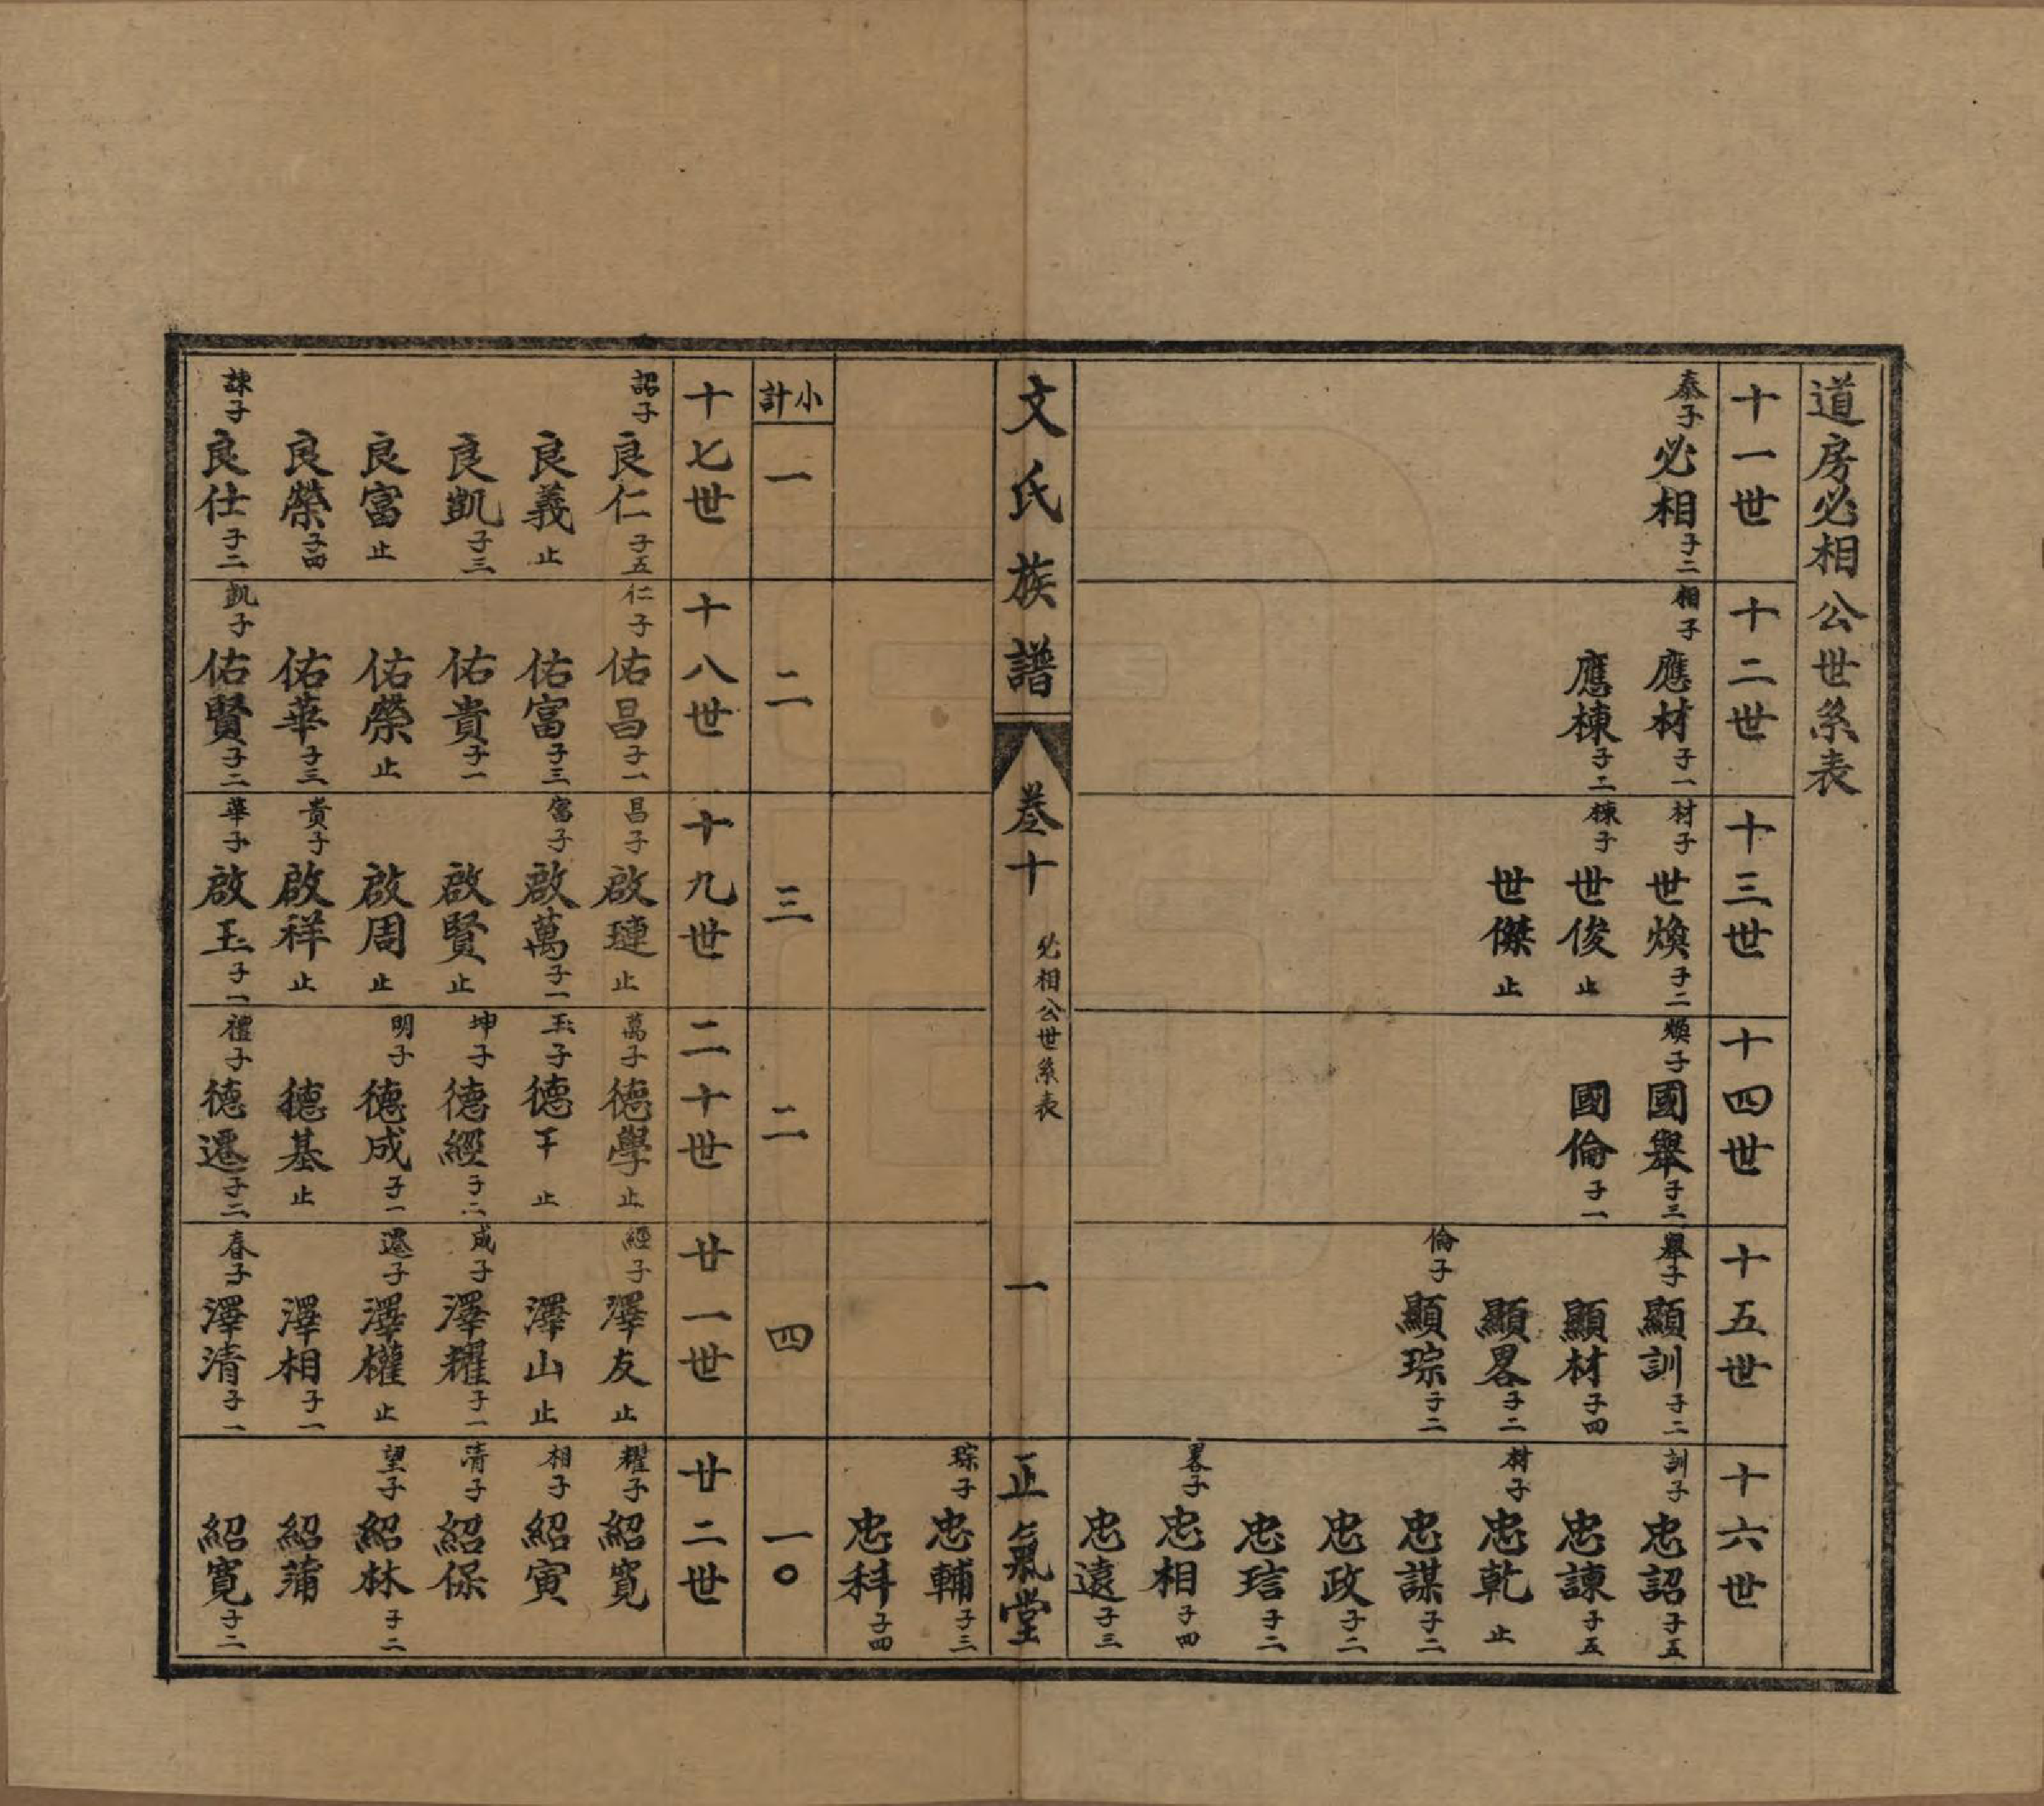 道房必相公世系表
十一世
泰子 必相 子二
十二世
相子 應材 子一
應棟 子二
十三世
材子 世煥 子二
棟子 世俊 止
世傑 止
十四世
煥子 國舉 子三
國倫 子一
十五世
舉子 顯訓 子二
顯材 子四
顯畧 子二
倫子 顯琮 子二
十六世
訓子 忠詔 子五
忠諫 子五
材子 忠乾 止
忠謀 子二
忠政 子二
忠琂 子二
畧子 忠相 子四
忠遠 子三
文氏族譜
卷十
必相公世系表
一
正氣堂
琮子 忠輔 子三
忠科 子四
小計
一
二
三
二
四
一〇
十七世
詔子 良仁 子五
良義 止
良凱 子三
良富 止
良榮 子四
諫子 良仕 子二
十八世
仁子 佑昌 子一
佑富 子三
佑貴 子一
佑榮 止
佑華 子三
凱子 佑賢 子二
十九世
昌子 啟璉 止
富子 啟萬 子一
啟賢 止
啟周 止
貴子 啟祥 止
華子 啟玉 子一
二十世
萬子 德學 止
玉子 德干 止
坤子 德經 子二
明子 德成 子一
德基 止
禮子 德遷 子二
廿一世
經子 澤友 止
澤山 止
成子 澤耀 子一
遷子 澤權 止
澤相 子一
春子 澤清 子一
廿二世
耀子 紹寬
相子 紹寅
清子 紹保
望子 紹林 子二
紹蒲
紹寬 子二